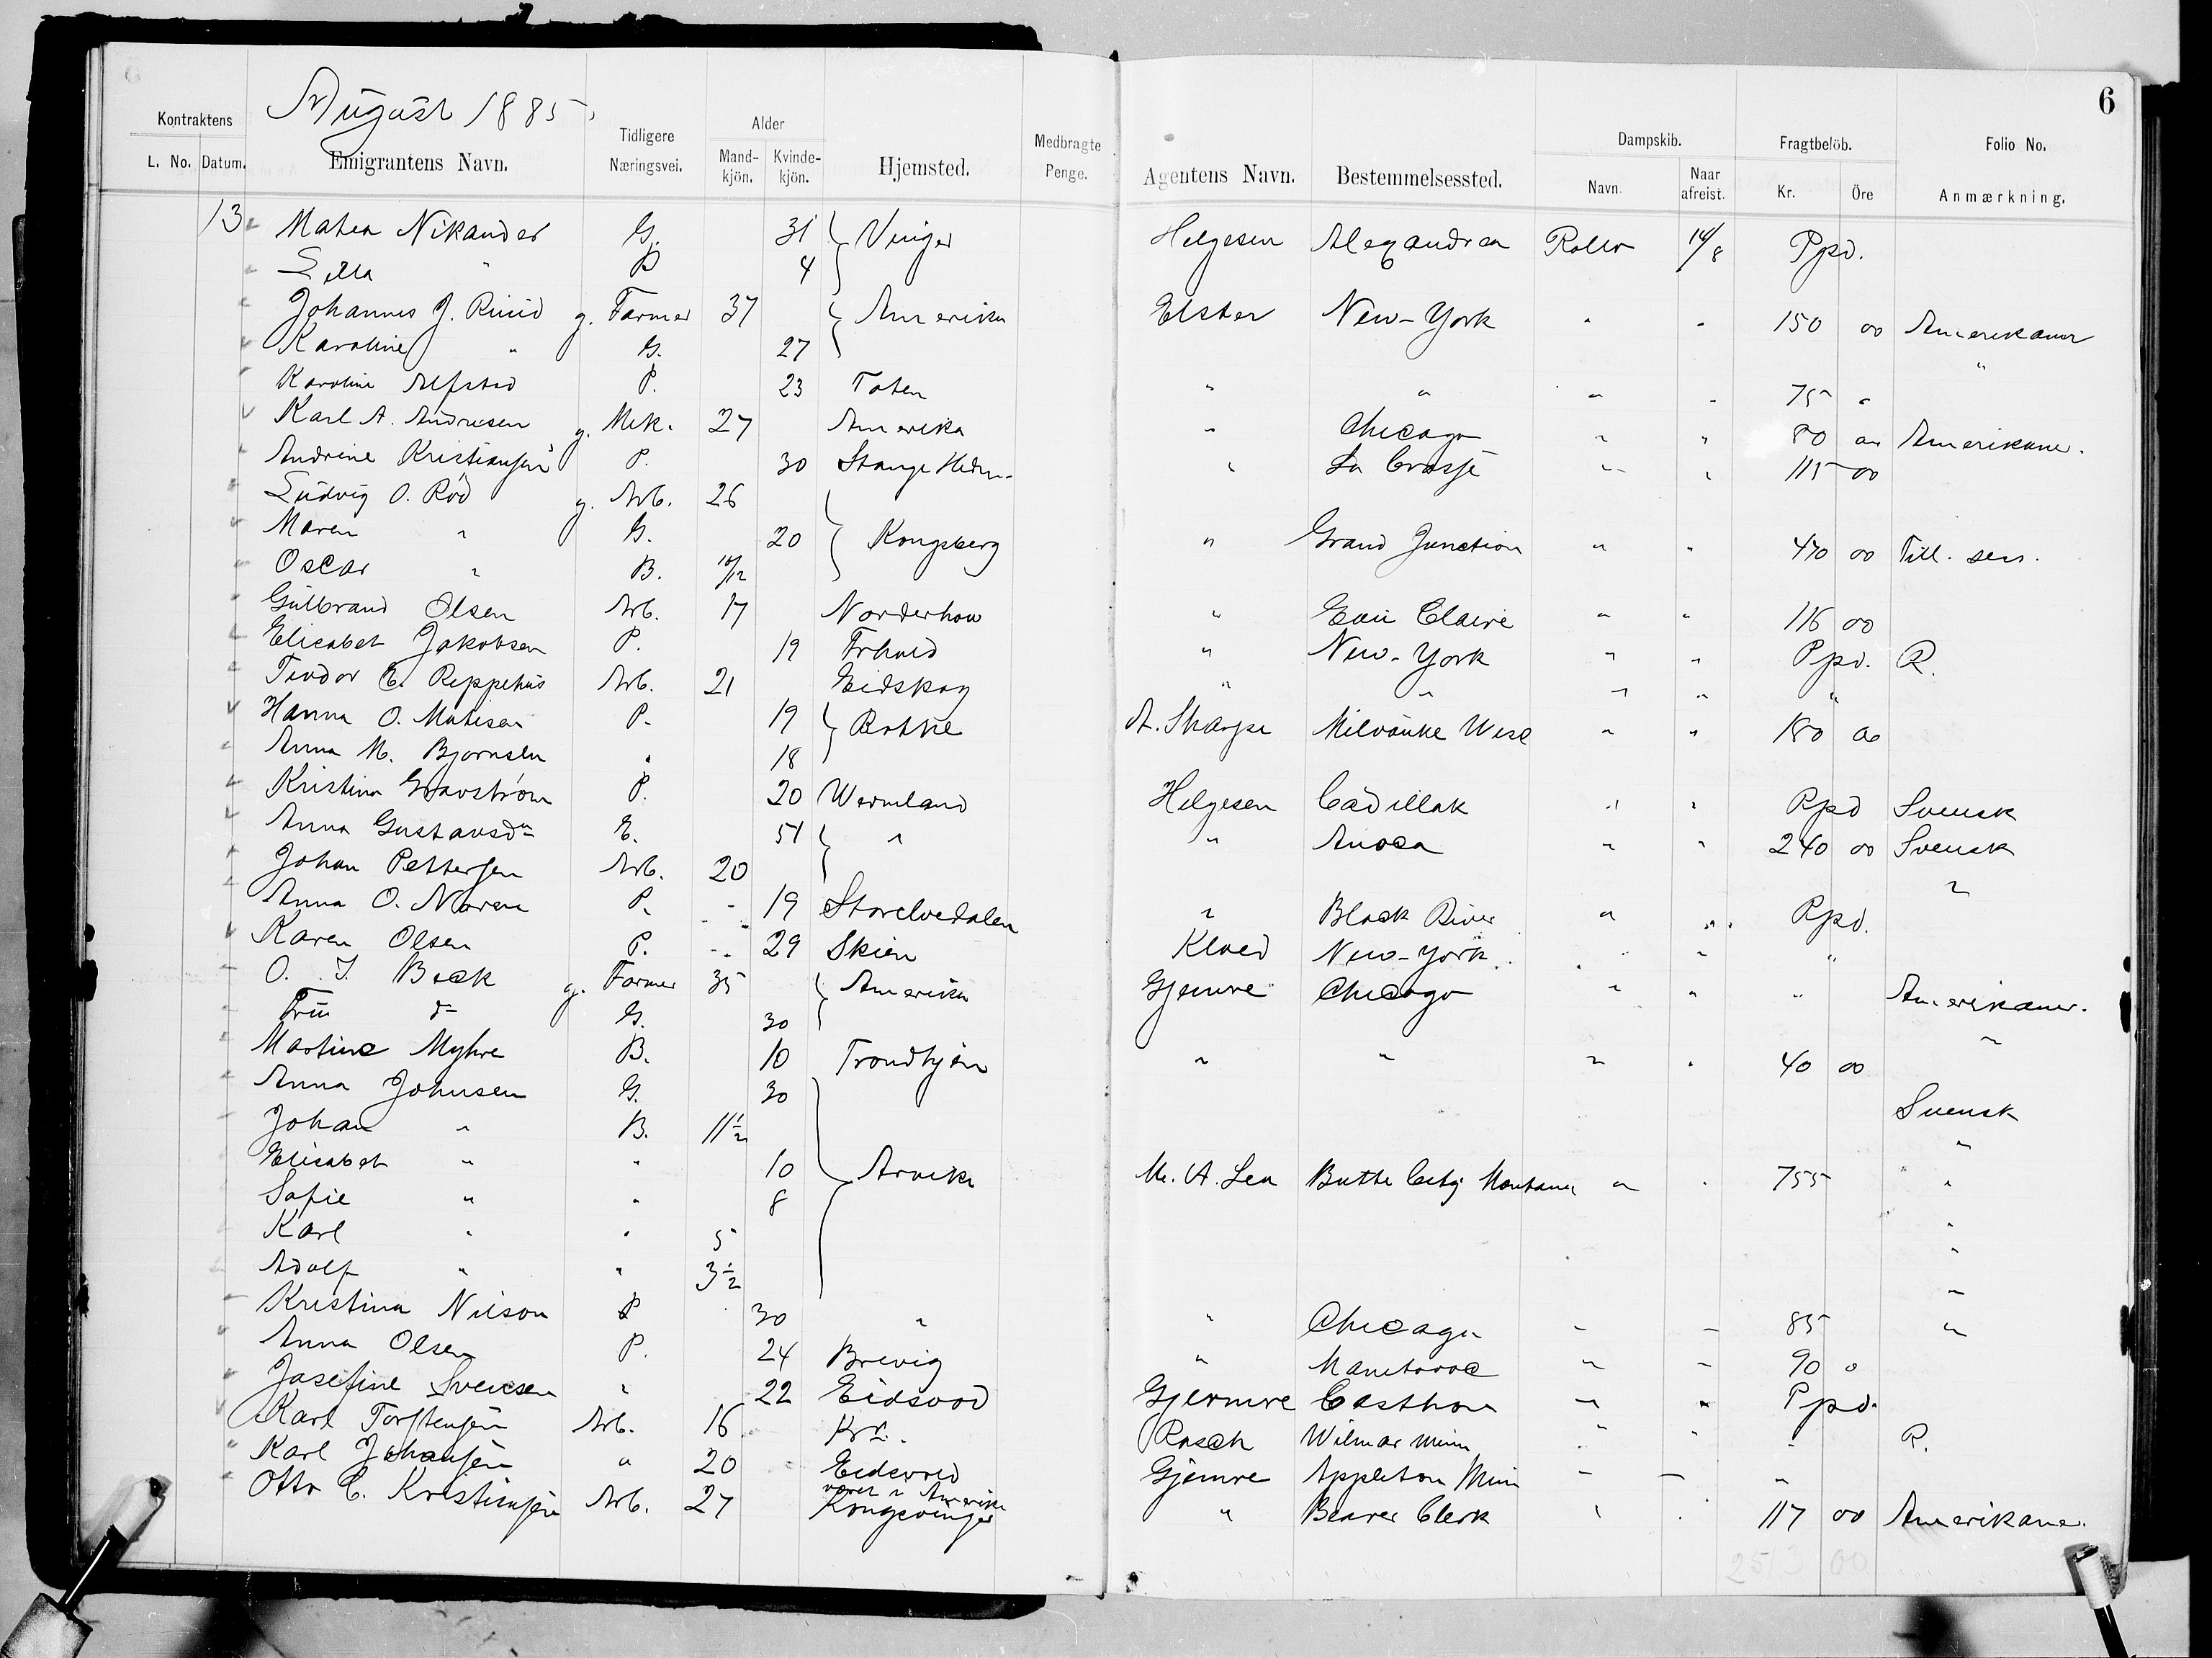 6
August 1885
Kontraktens L. No. Datum. Emigrantens Navn. Tidligere Næringsvei. Alder Mand-kjön. Kvinde-kjön. Hjemsted. Medbragte Penge. Agentens Navn. Bestemmelsessted. Dampskib. Navn. Naar afreist. Fragtbelöb. Kr. Öre Folio No. Anmærkning.
13 Matea Nikander G. 31 Vinger Helgesen Alexandrea Rollo 14/8 Ppd.
" B 4
Johannes J. Ruud g. Farmer 37 Amerika Elster New-York " " 150 00 Amerikaner
Karoline " G. 27 "
Karoline Alfstad P. 23 Toten " " " " 75 "
Karl A. Andresen g. Mek. 27 Amerika " Chicago " " 80 00 Amerikaner.
Andrine Kristiansen P. 30 Stange Hedm. " La Crosse " " 115 00
Ludvig O. Rød g. Arb. 26
Maren " G. 20 Kongsberg " Grand Junction " " 470 00 Till. sen.
Oscar " B. 10/12
Gulbrand Olsen Arb. 17 Norderhov " Eau Claire " " 116 00
Elisabet Jakobsen P. 19 Frhald " New-York " " Ppd. R.
Teodor E. Reppehus Arb. 21 Eidskog " " " " "
Hanna O. Matisen P. 19 A. Sharpe Milvauke Wisc " " 180 00
Anna M. Bjornsen " 18
Kristina P. 20 Wermland Helgesen Cadillak " " Ppd Svensk
Anna Gustavsdn E. 51 " " Anoca " " 240 00 Svensk
Johan Pettersen Arb. 20 "
Anna O. Noren P. 19 Storelvedalen " Black River " " Ppd.
Karen Olsen P. 29 Skien Kloed New-York " " "
O. J. Beck g. Farmer 35 Amerika Gjemre Chicago " " " Amerikaner.
Fru d- G. 30 "
Martine Myhre B. 10 Trondhjem " " " " 40 00
Anna Johnsen G. 30 Svensk
Johan " B. 11½ "
Elisabet " " 10 Arvika M. A. Lea Butte City Montana " " 755 "
Sofie " " 8 "
Karl " " 5 "
Adolf " " 3½ "
Kristina Nilson P 30 " " Chicago " " 85 "
Anna Olsen P. 24 Brevig " Manetovoc " " 90 "
Josefine Svensen " 22 Eidsvod Gjermre Casthon " " Ppd.
Karl Torstensen Arb. 16 Kra. Rasch Wilmar Minn " " " R.
Karl Johansen " 20 Eidsvold Gjemre Appleton Min " " "
Otto C. Kristiansen Arb. 27 været i Amerika Kongsvinger " Beaver Clerk " " 117 00 Amerikaner.
2513 00